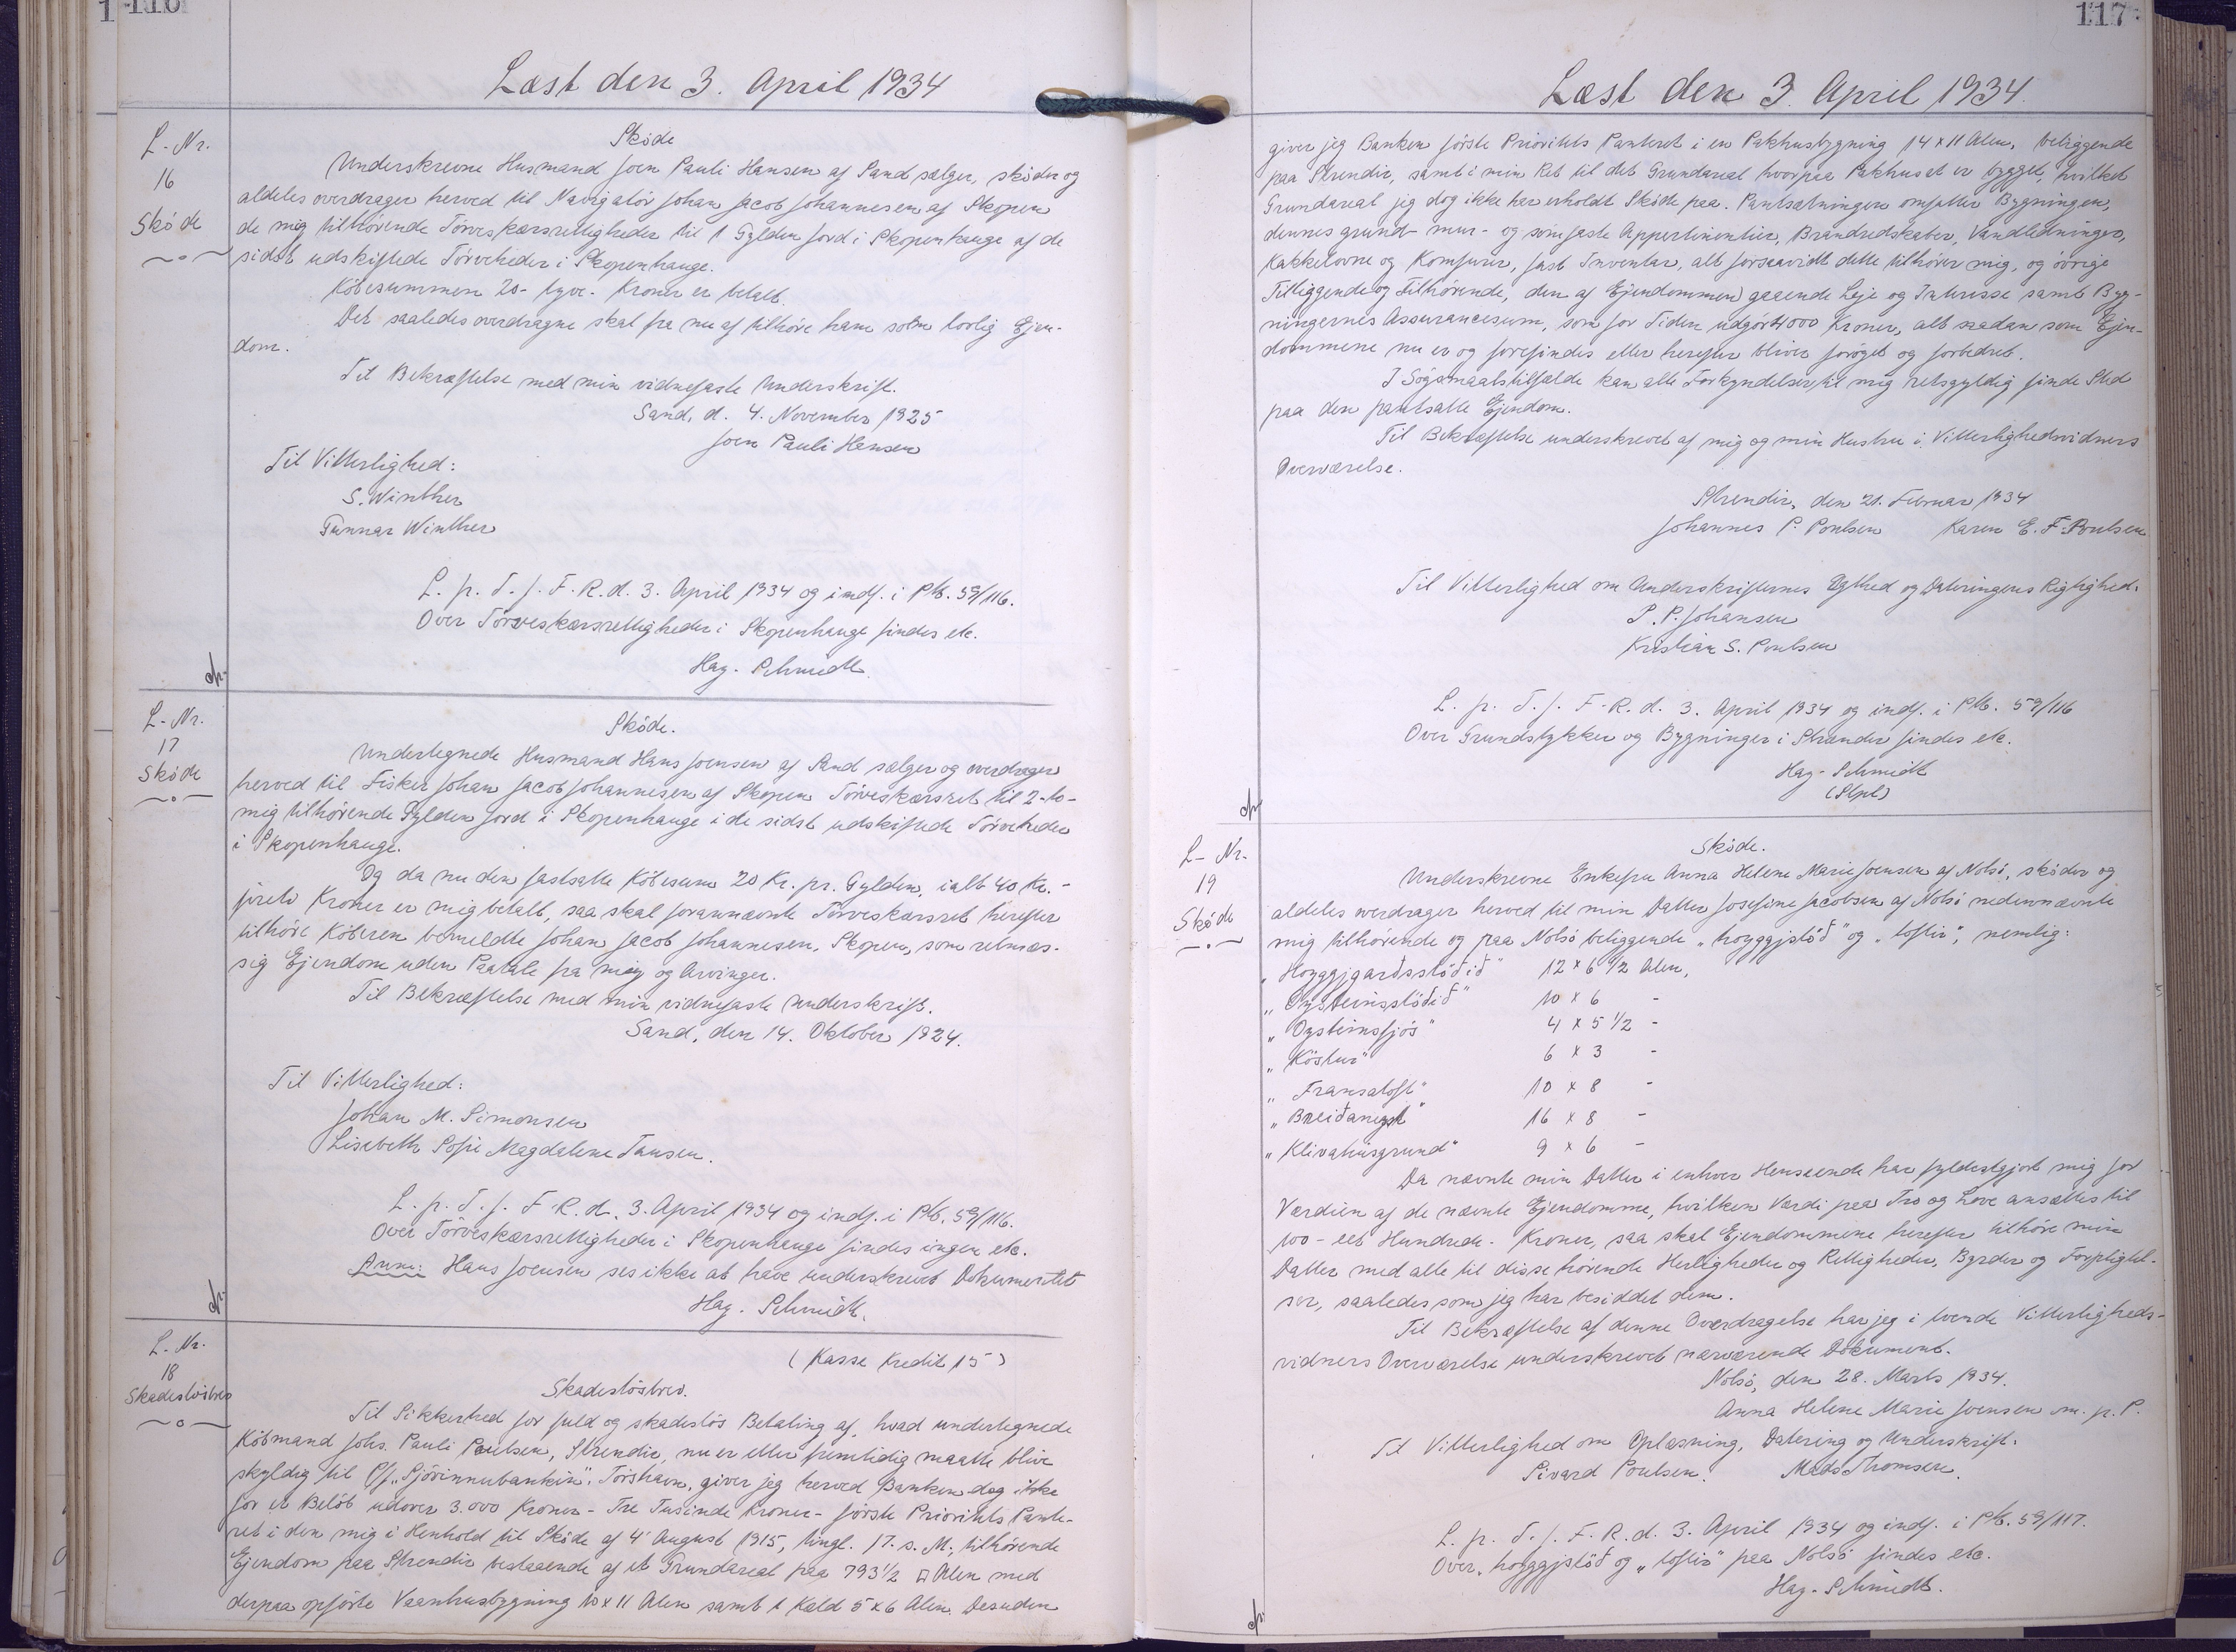 116
Læst den 3. April 1934
L-Nr.
16
Sköde
Sköde
Underskrevne Husmand Joen Pauli Hansen af Sand sælger, sköder og
aldeles overdrager herved til Navigatör Johan Jacob Johannesen af Skopen
de mig tilhörende Törveskærsrettigheder til 1 Gylden Jord i Skopenhauge af de
sidst udskiftede Törveheder i Skopenhauge.
Köbesummen 20- tyve- Kroner er betalt.
Det saaledes overdragne skal fra nu af tilhöre ham som lovlig Ejen-
dom.
Til Bekræftelse med min vidnefaste Underskrift.
Sand, d. 4. November 1925
Joen Pauli Hansen
Til Vitterlighed:
S. Winther
Gunnar Winther
L. p. T. f. F. R. d. 3. April 1934 og indf. i Pb. 59/116.
Over Törveskærsrettigheder i Skopenhauge findes etc.
Hag. Schmidt.
L-Nr.
17
Sköde
Sköde.
Undertegnede Husmand Hans Joensen af Sand sælger og overdrager
herved til Fisker Johan Jacob Johannesen af Skopen Törveskærsret til 2-to-
mig tilhörende Gylden Jord i Skopenhauge i de sidst udskiftede Törveheder
i Skopenhauge.
Og da nu den fastsatte Köbesum 20 Kr. pr. Gylden, ialt 40 Kr. -
fireti Kroner er mig betalt, saa skal forannævnte Törveskærsret herefter
tilhöre Köberen bemeldte Johan Jacob Johannesen, Skopen, som retmæs-
sig Ejendom uden Paatale fra mig og Arvinger.
Til Bekræftelse med min vidnefaste Underskrift.
Sand, den 14. Oktober 1924.
Til Vitterlighed:
Johan M. Simonsen
Lisebeth Sofie Magdalene Tausen.
L. p. T. f. F. R. d. 3. April 1934 og indf. i Pb. 59/116.
Over Törveskærsrettigheder i Skopenhauge findes ingen etc.
Anm: Hans Joensen ses ikke at have underskrevet Dokumentet
Hag. Schmidt.
L. Nr.
18
Skadeslösbrev
(Kasse Kredit 15)
Skadeslösbrev.
Til Sikkerhed for fuld og skadeslös Betaling af, hvad undertegnede
Köbmand Johs. Pauli Poulsen, Strendir, nu er eller fremtidig maatte blive
skyldig til P/f. "Sjóvinnubankin", Tórshavn, giver jeg herved Banken dog ikke
for et Belöb udover 3.000 Kroner - Tre Tusinde Kroner - förste Prioritets Pante-
ret i den mig i Henhold til Sköde af 4' August 1915, tingl. 17. s. M., tilhörende
Ejendom paa Strendir bestaaende af et Grundareal paa 793 1/2 □ Alen med
derpaa opförte Vaanhusbygning 10 x 11 Alen samt 1 Kæld 5 x 6 Alen. Desuden
117
Læst den 3. April 1934.
giver jeg Banken förste Prioritets Panteret i en Pakhusbygning 14 x 11 Alen, beliggende
paa Strendir, samt i min Ret til det Grundareal hvorpaa Pakhuset er bygget, hvilket
Grundareal jeg dog ikke har erholdt Sköde paa. Pantsætningen omfatter Bygningen,
dennes grund- mur- og somfaste Appertinentier, Brandredskaber, Vandledninger,
Kakkelovne og Komfurer, fast Inventar, alt forsaavidt dette tilhörer mig, og övrige
Tilliggende og Tilhörende, den af Ejendommen gaaende Leje og Interesse samt Byg-
ningernes Assurancesum, som for Tiden udgör 4000 Kroner, alt saadan som Ejen-
dommene nu er og forefindes eller herefter bliver foröget og forbedret.
I Sögsmaalstilfælde kan alle Forkyndelser til mig retsgyldig finde Sted
paa den pantsatte Ejendom.
Til Bekræftelse underskrevet af mig og min Hustru i Vitterlighedsvidners
Overværelse.
Strendir, den 21. Februar 1934
Johannes P. Poulsen Karen E. F. Poulsen
Til Vitterlighed om Underskrifternes Ægthed og Dateringens Rigtighed.
P. P. Johansen
Kristian S. Poulsen
L. p. T. f. F. R. d. 3. April 1934 og indf. i Pb. 59/116
Over Grundstykker og Bygninger i Strænder findes etc.
Hag. Schmidt
L- Nr.
19
Sköde
Sköde.
Underskrevne Enkefru Anna Helene Marie Joensen af Nolsö, sköder og
aldeles overdrager herved til min Datter Josefine Jacobsen af Nolsö nedennævnte
mig tilhörende og paa Nolsö beliggende "hoyggjstöð" og "toftir", nemlig:
"Hoyggjgarðsstöðið" 12 x 6 1/2 Alen,
"Oysteinsstöðið" 10 x 6 -
"Oysteinsfjós" 4 x 5 1/2 -
"Köstur" 6 x 3 -
"Fransatoft" 10 x 8 -
16 x 8 -
"Klivahúsgrund" 9 x 6 -
Da nævnte min Datter i enhver Henseende har fyldestgjort mig for
Værdien af de nævnte Ejendomme, hvilken Værdi paa Tro og Love ansættes til
100 - eet Hundrede - Kroner, saa skal Ejendommene herefter tilhöre min
Datter med alle til disse hörende Herligheder og Rettigheder, Byrder og Forpligtel-
ser, saaledes som jeg har besiddet dem.
Til Bekræftelse af denne Overdragelse har jeg i tvende Vitterligheds-
vidners Overværelse underskrevet nærværende Dokument.
Nolsö, den 28. Marts 1934.
Anna Helene Marie Joensen m. p. P.
Til Vitterlighed om Oplæsning, Datering og Underskrift.
Sivard Poulsen. Mads Thomsen.
L. p. T. f. F. R. d. 3. April 1934 og indf. i Pb. 59/117.
Over "hoyggjstöð og "toftir" paa Nolsö findes etc.
Hag. Schmidt.